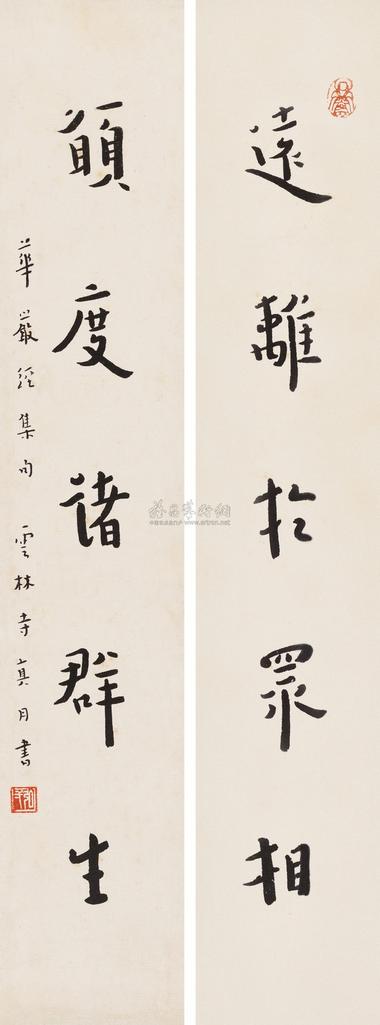 遠離於眾相
願度諸群生
華嚴經集句 雲林寺真月書
雅昌藝術網
www.artron.net